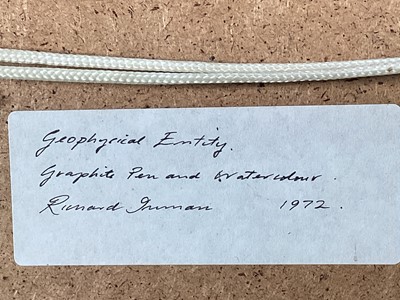 Geophysical Entity.
Graphite Pen and Watercolour.
Richard Inman 1972.